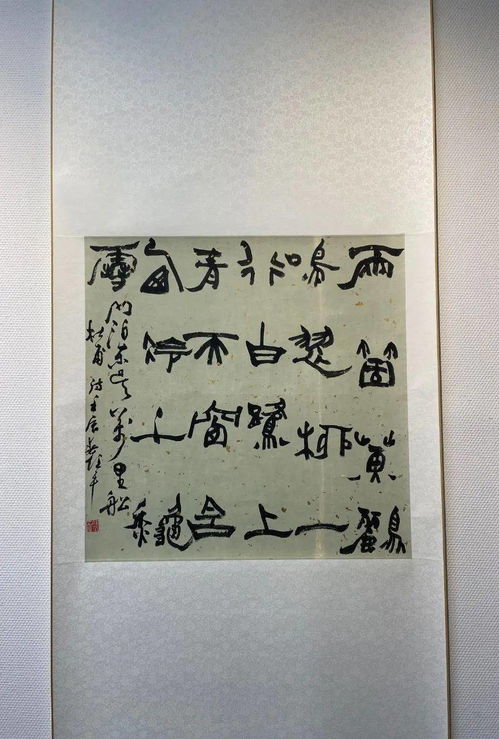 兩箇黃鸝
鳴翠柳一
行白鷺上
青天窗含
西岭千龝
雪門泊東吳萬里船
杜甫詩壬辰